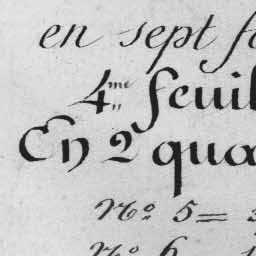 en sept f
4me feuil
En 2 qua
No. 5 =
No. 6